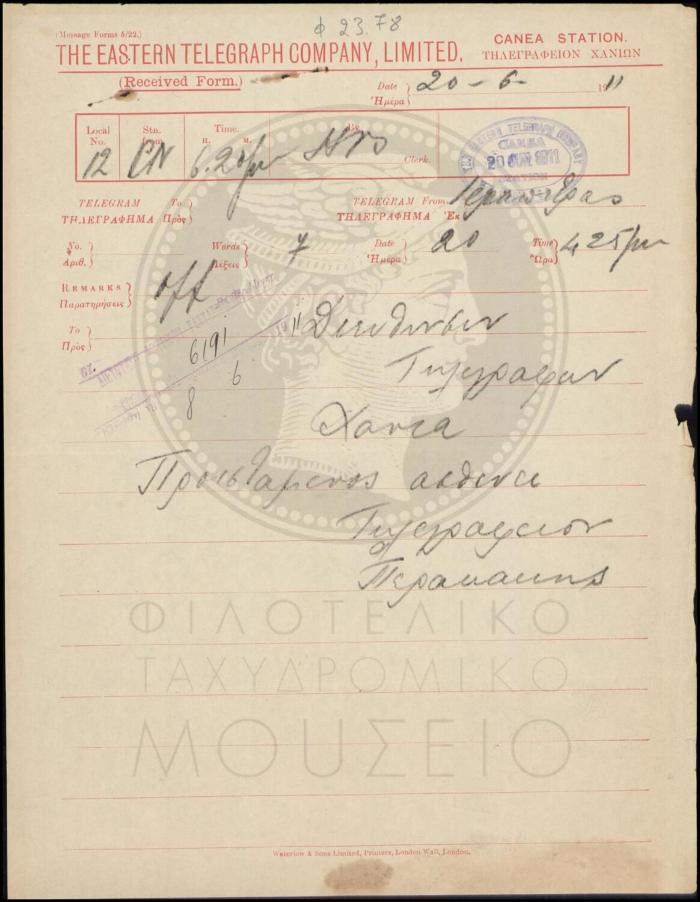 Φ 23.78
(Message Forms 5/22.)
THE EASTERN TELEGRAPH COMPANY, LIMITED.
CANEA STATION.
ΤΗΛΕΓΡΑΦΕΙΟΝ ΧΑΝΙΩΝ
(Received Form.)
Date
Ἡμέρα
20-6- 1911
Local No. Stn. from Time. H. M. By
12 CN 6.20/pm Clerk.
THE EASTERN TELEGRAPH COMPANY
CANEA
20 JUN 1911
STATION
TELEGRAM To
ΤΗΛΕΓΡΑΦΗΜΑ Πρὸς
TELEGRAM From
ΤΗΛΕΓΡΑΦΗΜΑ Ἐκ
Ιεραπετρας
No. Words 7 Date 20 Time 4 25/pm
Ἀριθ. Λέξεις Ἡμέρα Ὥρα
REMARKS off
Παρατηρήσεις
To
Πρὸς
6191
11
6
8
Διευθυνσιν
Τηλεγραφων
Χανια
Προισταμενος ασθενει
Τηλεγραφειον
Περακακης
ΦΙΛΟΤΕΛΙΚΟ
ΤΑΧΥΔΡΟΜΙΚΟ
ΜΟΥΣΕΙΟ
Waterlow & Sons Limited, Printers, London Wall, London.